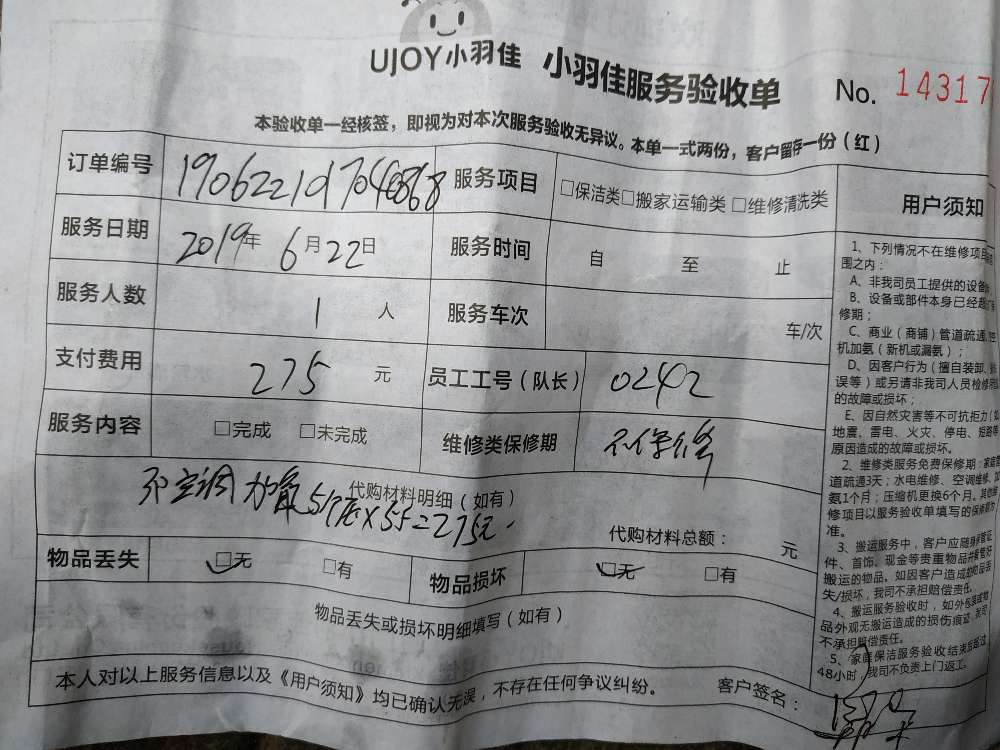 UJOY小羽佳 小羽佳服务验收单 No. 14317
本验收单一经核签，即视为对本次服务验收无异议。本单一式两份，客户留存一份（红）
订单编号 服务项目 □保洁类□搬家运输类 □维修清洗类
服务日期 2019年 6月22日 服务时间 自 至 止
服务人数 1 人 服务车次 车/次
支付费用 275 元 员工工号（队长） 0242
服务内容 □完成 □未完成 维修类保修期 不保修
空调加氟 5个压×55=275元
代购材料明细（如有）
代购材料总额： 元
物品丢失 □无 □有 物品损坏 □无 □有
物品丢失或损坏明细填写（如有）
本人对以上服务信息以及《用户须知》均已确认无误，不存在任何争议纠纷。 客户签名：
用户须知
1、下列情况不在维修项目
围之内：
A、非我司员工提供的设备
B、设备或部件本身已经超
修期；
C、商业（商铺）管道疏通
机加氨（新机或漏氨）；
D、因客户行为（擅自装卸、
误等）或另请非我司人员检修
的故障或损坏；
E、因自然灾害等不可抗拒力（如
地震、雷电、火灾、停电、短路等
原因造成的故障或损坏。
2、维修类服务免费保修期：家庭管
道疏通3天；水电维修、空调维修、加
氨1个月；压缩机更换6个月。其他维
修项目以服务验收单填写的保修期为
准。
3、搬运服务中，客户应随身保管证
件、首饰、现金等贵重物品并看管好
搬运的物品。如因客户造成的物品丢
失/损坏，我司不承担赔偿责任。
4、搬运服务验收时，如外包装或物
品外观无搬运造成的损伤痕迹，我司
不承担赔偿责任。
5、家庭保洁服务验收结束后超过
48小时，我司不负责上门返工。